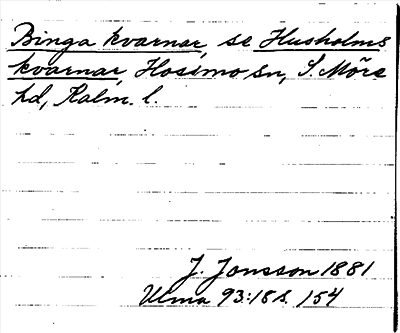 Binga kvarnar, se Husholms
kvarnar, Hossmo sn, S. Möre
hd, Kalm. l.
J. Jonsson 1881
Ulma 93:18 s. 154